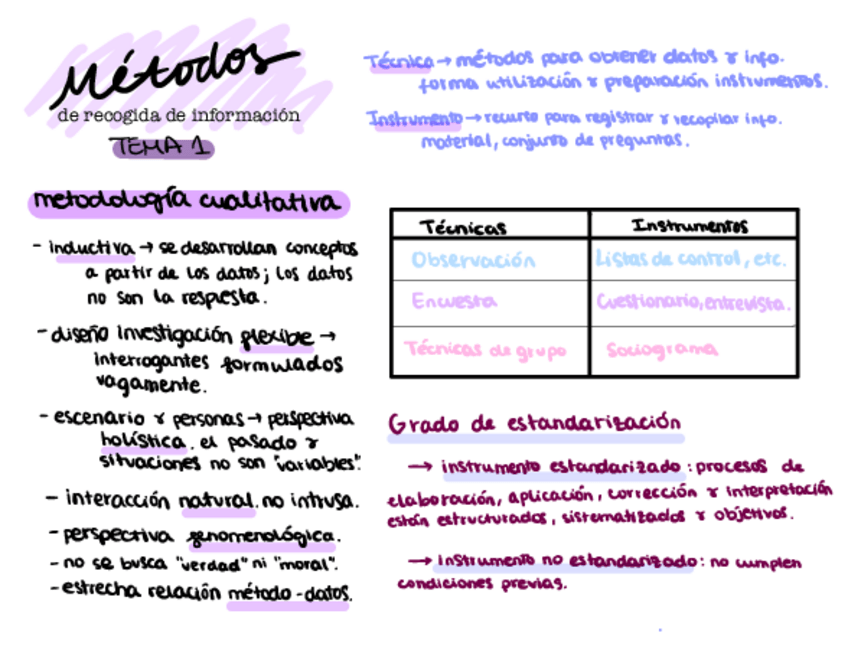 Métodos
de recogida de información
TEMA 1
Técnica → métodos para obtener datos y info.
forma utilización y preparación instrumentos.
Instrumento → recurso para registrar y recopilar info.
material, conjunto de preguntas.
metodología cualitativa
- inductiva → se desarrollan conceptos
a partir de los datos; los datos
no son la respuesta.
- diseño investigación flexible →
interrogantes formulados
vagamente.
- escenario y personas → perspectiva
holística. el pasado y
situaciones no son "variables".
- interacción natural. no intrusa.
- perspectiva fenomenológica.
- no se busca "verdad" ni "moral".
- estrecha relación método-datos.
Técnicas Instrumentos
Observación Listas de control, etc.
Encuesta Cuestionario, entrevista.
Técnicas de grupo Sociograma
Grado de estandarización
→ instrumento estandarizado: procesos de
elaboración, aplicación, corrección y interpretación
están estructurados, sistematizados y objetivos.
→ instrumento no estandarizado: no cumplen
condiciones previas.